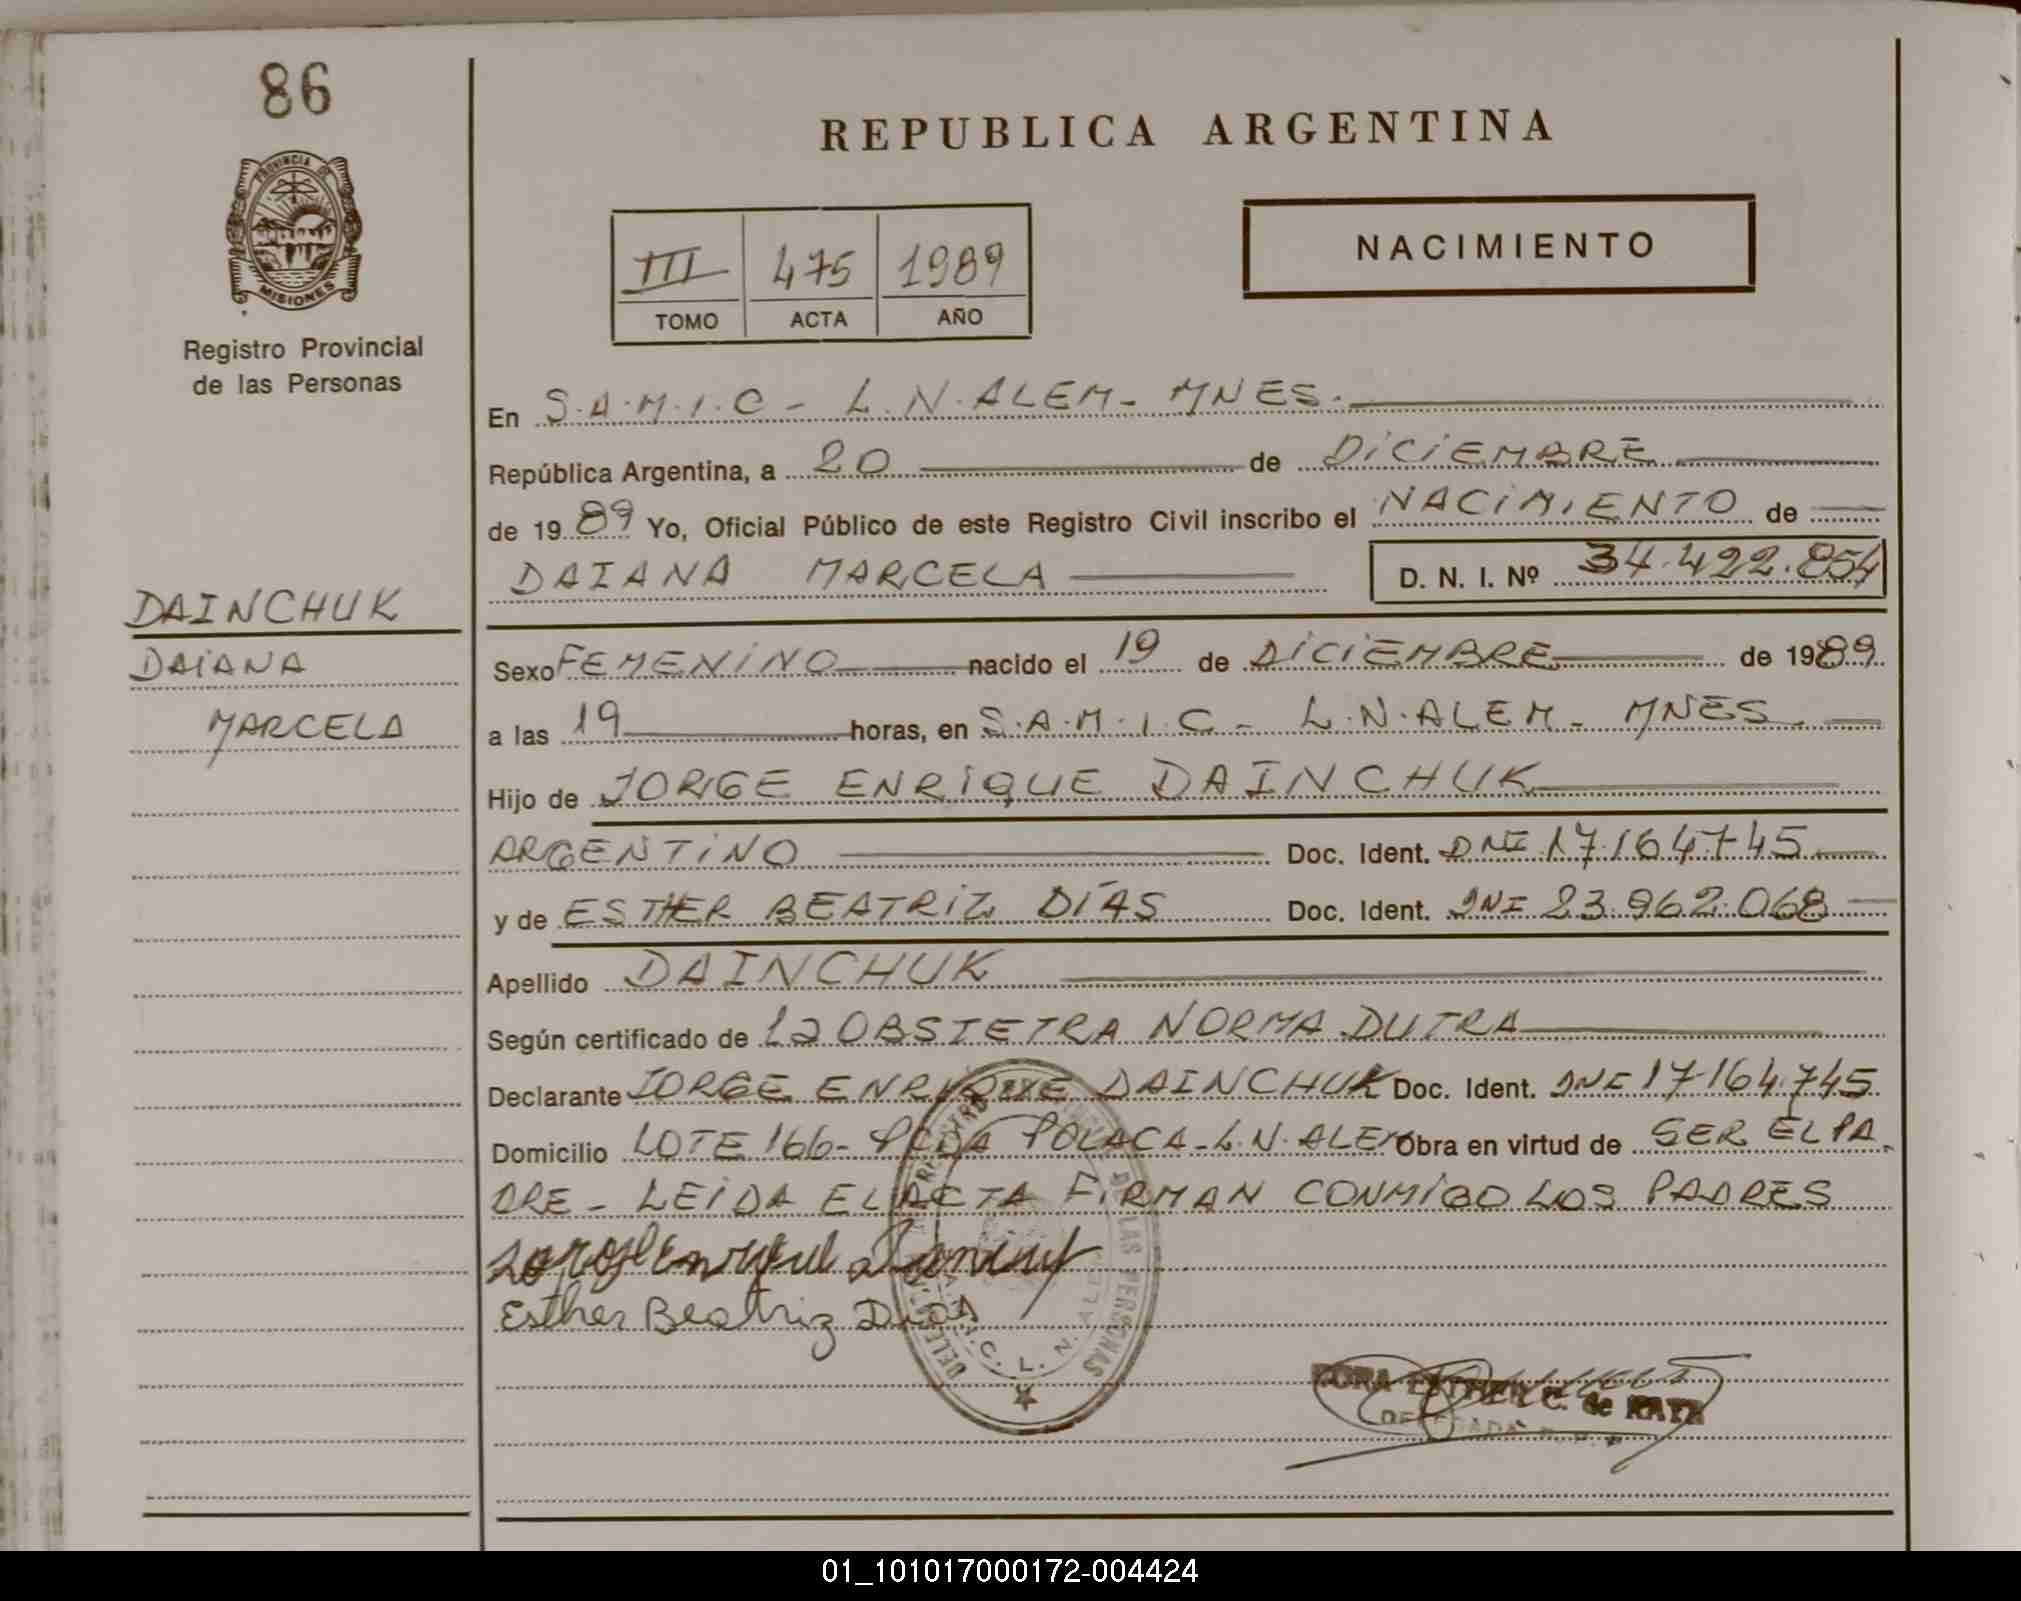 86
PROVINCIA DE
MISIONES
Registro Provincial
de las Personas
DAINCHUK
DAIANA
MARCELA
REPUBLICA ARGENTINA
III 475 1989
TOMO ACTA AÑO
NACIMIENTO
En S.A.M.I.C - L.N.ALEM - MNES.
República Argentina, a 20 de DICIEMBRE
de 1989 Yo, Oficial Público de este Registro Civil inscribo el NACIMIENTO de
DAIANA MARCELA D. N. I. Nº 34.422.854
Sexo FEMENINO nacido el 19 de DICIEMBRE de 1989
a las 19 horas, en S.A.M.I.C - L.N.ALEM - MNES.
Hijo de JORGE ENRIQUE DAINCHUK
ARGENTINO Doc. Ident. DNI 17.164.745
y de ESTHER BEATRIZ DÍAS Doc. Ident. DNI 23.962.068
Apellido DAINCHUK
Según certificado de la OBSTETRA NORMA DUTRA
Declarante JORGE ENRIQUE DAINCHUK Doc. Ident. DNI 17.164.745
Domicilio LOTE 166 - PCDA POLACA - L.N.ALEM Obra en virtud de SER EL PA
DRE - LEIDA EL ACTA FIRMAN CONMIGO LOS PADRES
Esther Beatriz Días
DE LAS PERSONAS
L. N. ALEM
ESTHER C. de
01_101017000172-004424